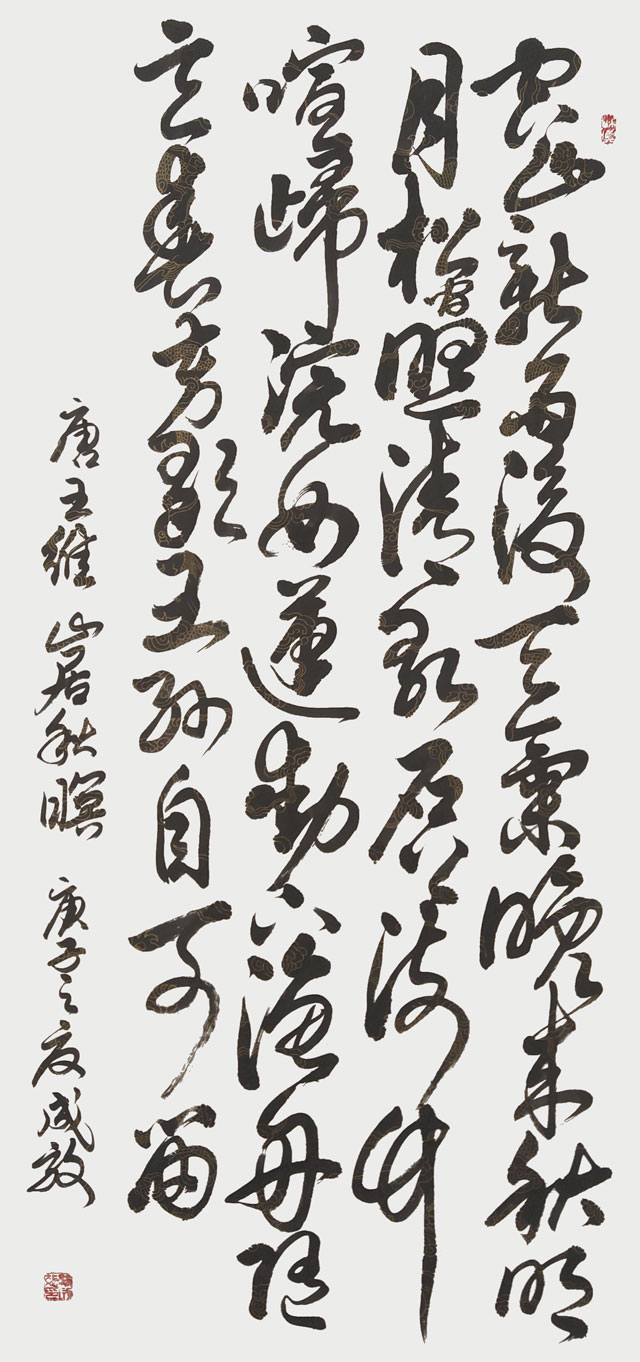 空山新雨後天氣晚來秋明
月松間照清泉石上流竹
喧歸浣女蓮動下漁舟隨
意春芳歇王孫自可留
唐王維 山居秋暝 庚子之夏成